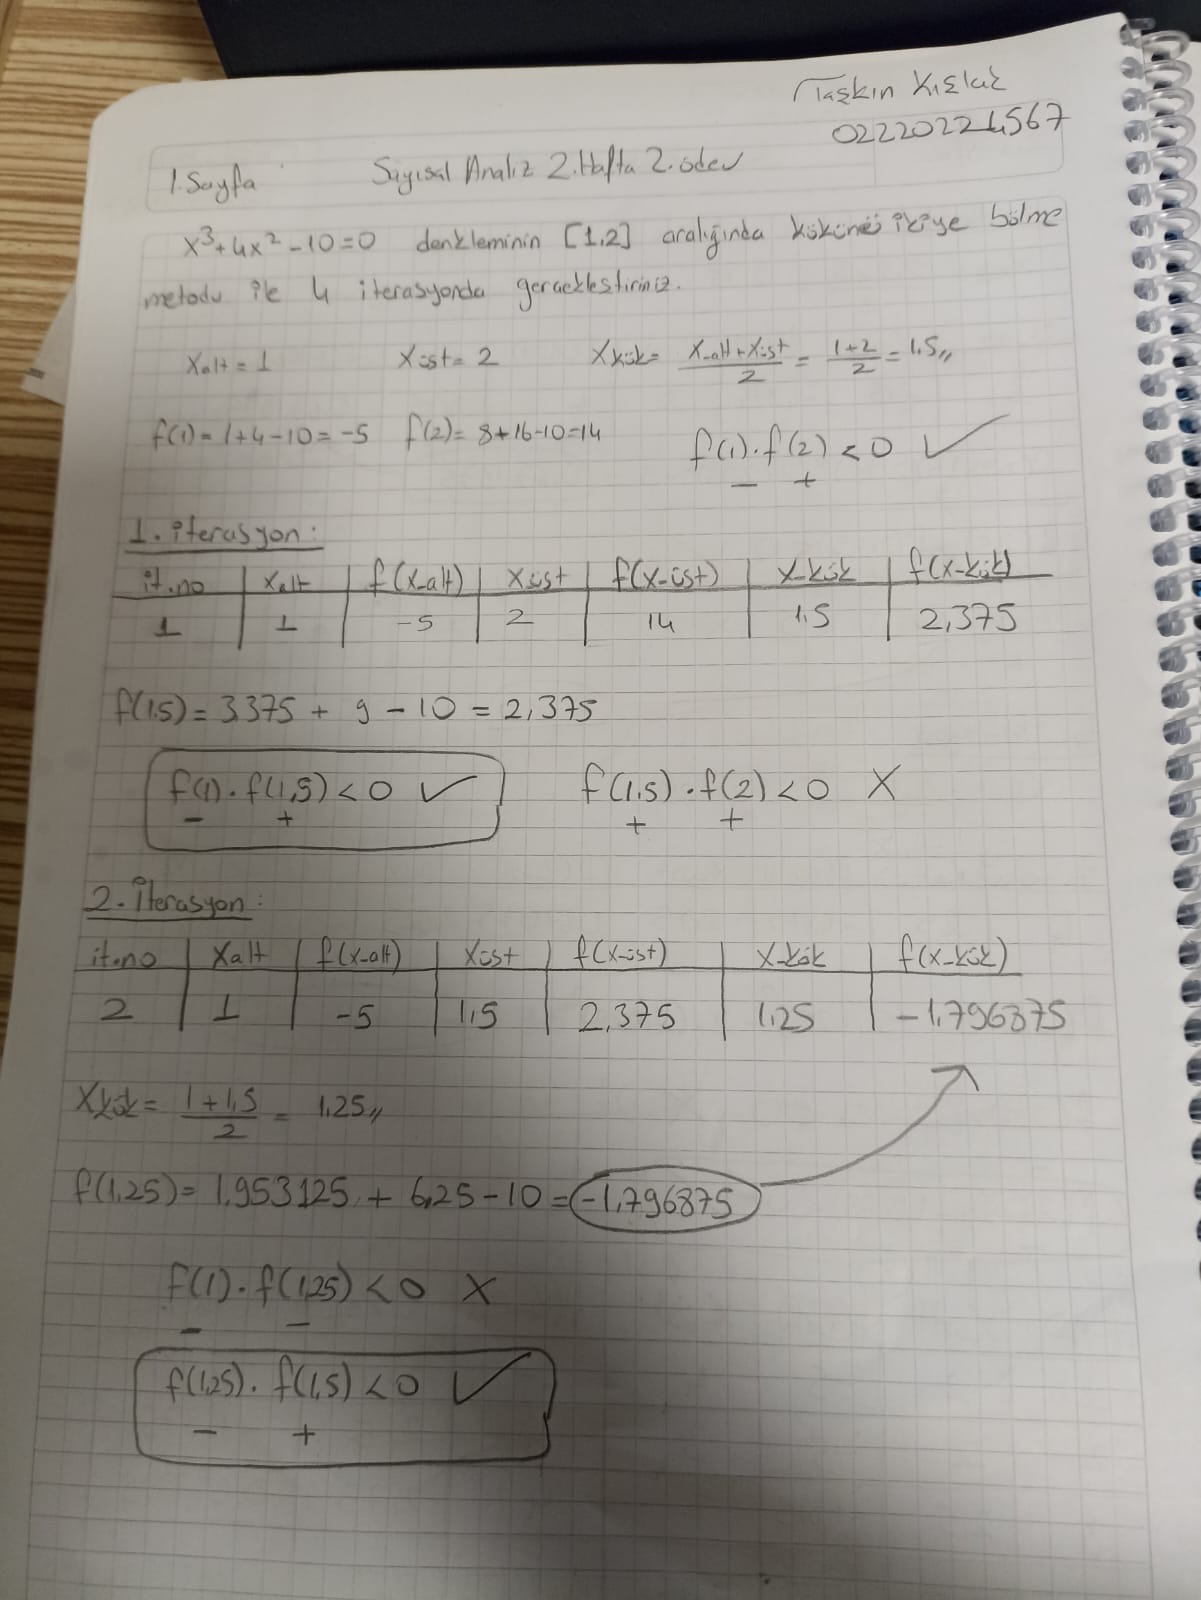 Taşkın Kışlak
02220224567
1.Sayfa Sayısal Analiz 2.Hafta 2.ödev
x³+4x²-10=0 denkleminin [1,2] aralığında kökünü ikiye bölme
metodu ile 4 iterasyonda gerçekleştiriniz.
Xalt = 1 Xüst = 2 Xkök = (X-alt+Xüst)/2 = (1+2)/2 = 1.5,,
f(1) = 1+4-10 = -5 f(2) = 8+16-10=14 f(1).f(2) < 0 ✓
- +
1. iterasyon:
it.no | Xalt | f(x-alt) | Xüst | f(x-üst) | X-kök | f(x-kök)
1 | 1 | -5 | 2 | 14 | 1.5 | 2,375
f(1.5) = 3.375 + 9 - 10 = 2,375
f(1).f(1,5) < 0 ✓ f(1,5).f(2) < 0 X
- + + +
2. İterasyon:
it.no | Xalt | f(x-alt) | Xüst | f(x-üst) | X-kök | f(x-kök)
2 | 1 | -5 | 1,5 | 2,375 | 1,25 | -1,796375
Xkök = (1+1,5)/2 = 1,25,,
f(1,25) = 1,953125 + 6,25 - 10 = -1,796875
f(1).f(1,25) < 0 X
- -
f(1,25).f(1,5) < 0 ✓
- +